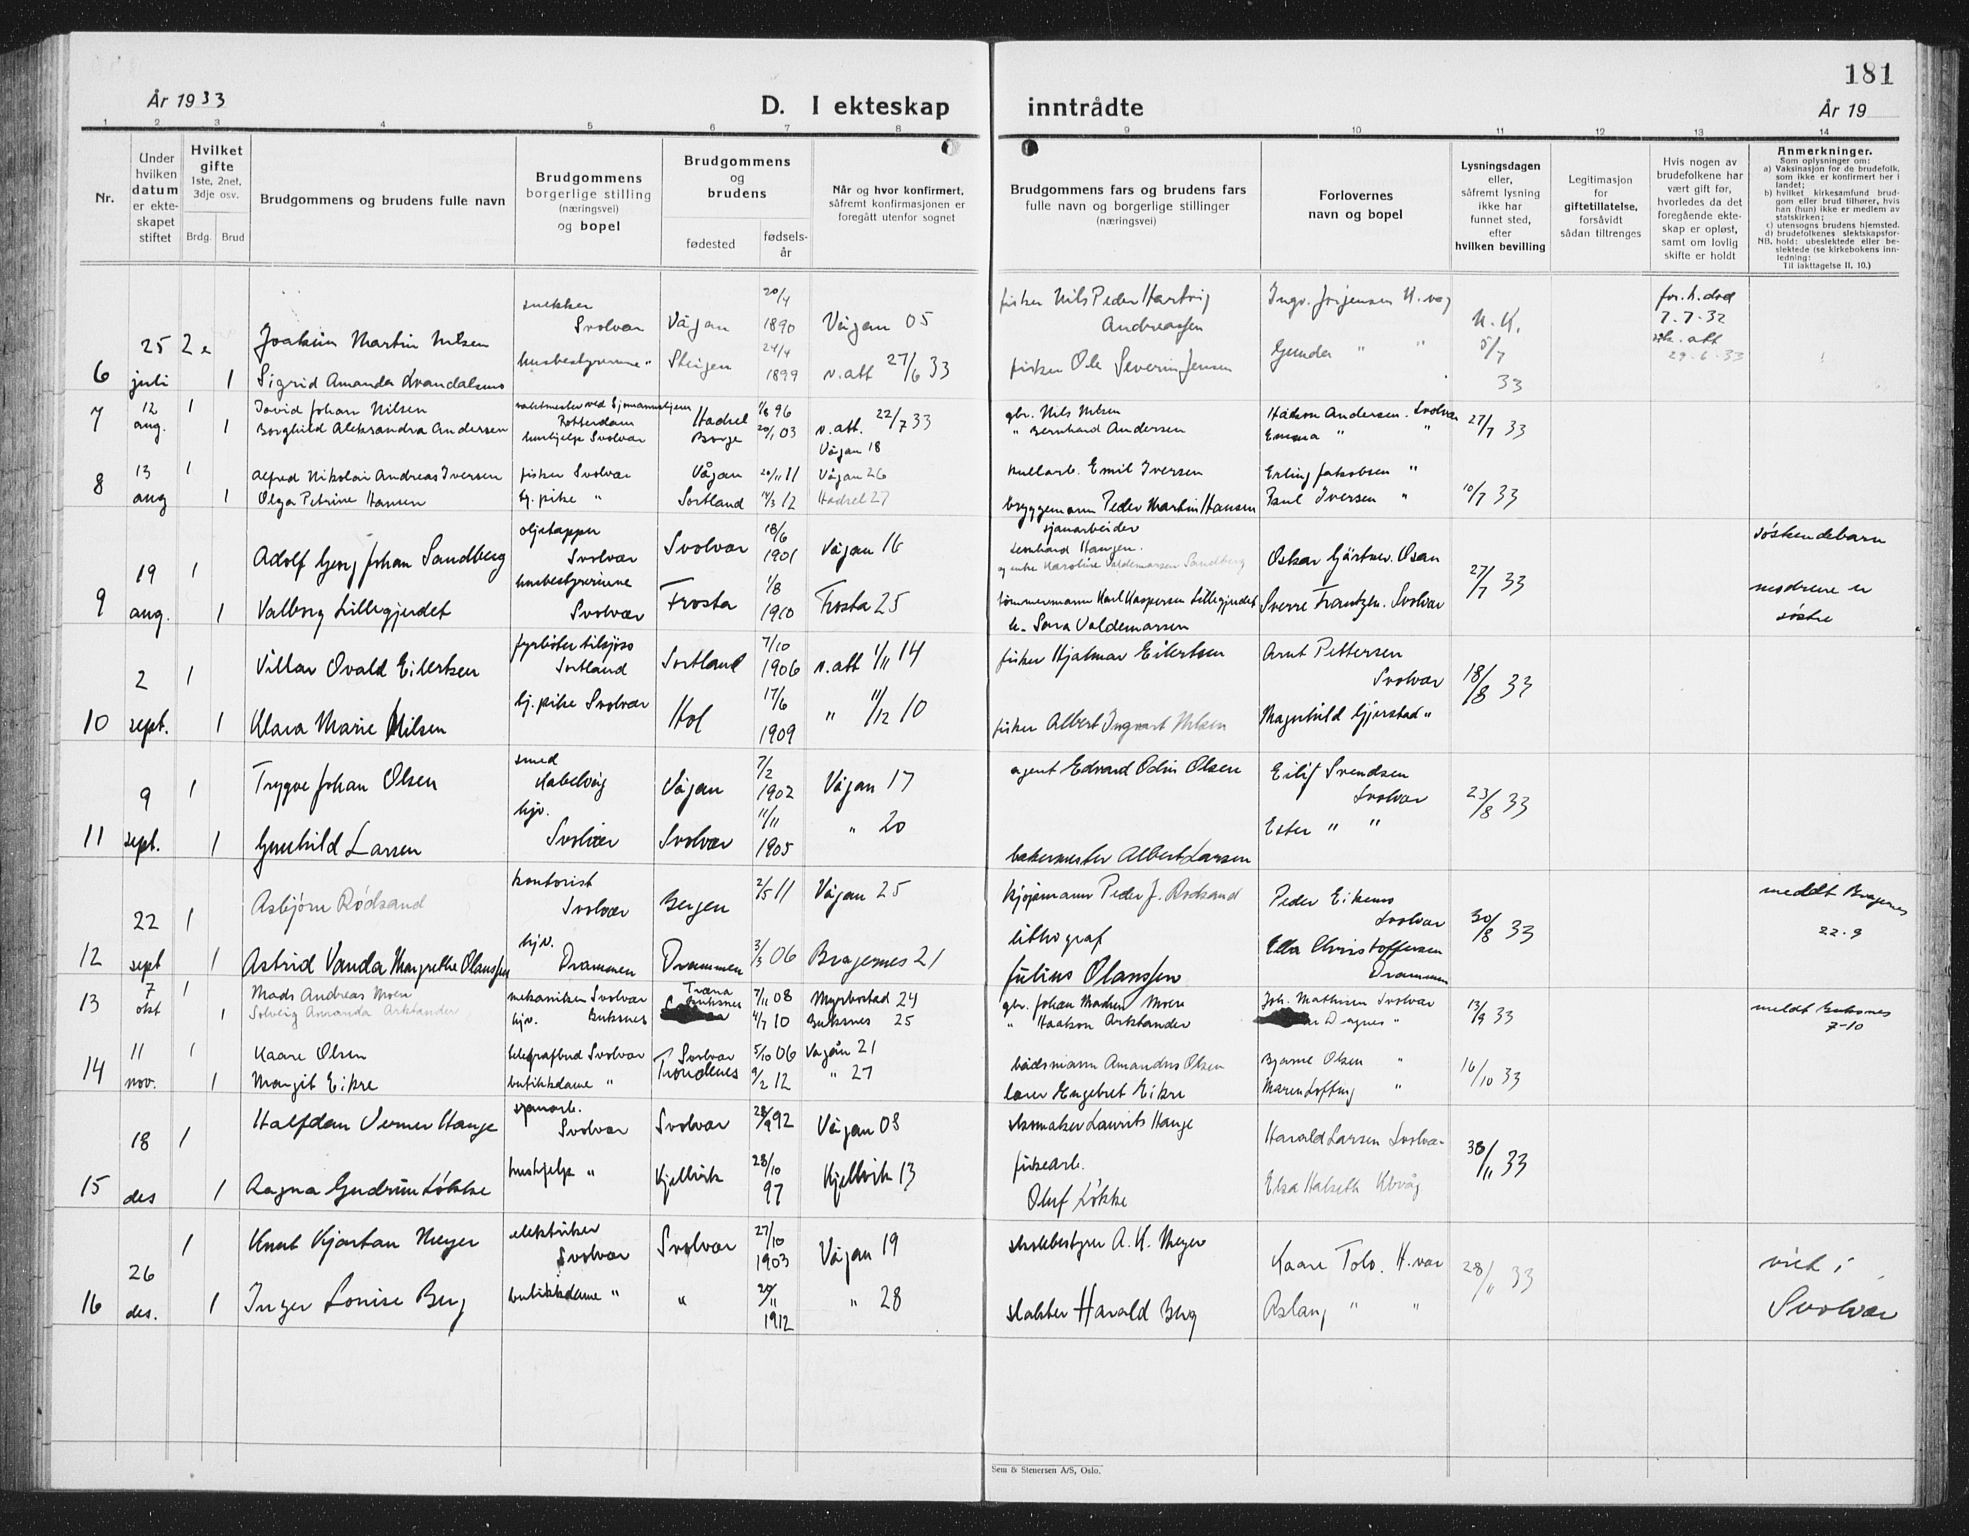 181
År 1933
D. I ekteskap inntrådte
År 19
1 2 3 4 5 6 7 8 9 10 11 12 13 14
Nr.
Under hvilken datum er ekteskapet stiftet
Hvilket gifte 1ste, 2net, 3dje osv.
Brdg. Brud
Brudgommens og brudens fulle navn
Brudgommens borgerlige stilling (næringsvei) og bopel
Brudgommens og brudens
fødested fødsels-år
Når og hvor konfirmert, såfremt konfirmasjonen er foregått utenfor sognet
Brudgommens fars og brudens fars fulle navn og borgerlige stillinger (næringsvei)
Forlovernes navn og bopel
Lysningsdagen eller, såfremt lysning ikke har funnet sted, efter hvilken bevilling
Legitimasjon for giftetillatelse, forsåvidt sådan tiltrenges
Hvis nogen av brudefolkene har vært gift før, hvorledes da det foregående ekteskap er opløst, samt om lovlig skifte er holdt
Anmerkninger.
Som oplysninger om:
a) Vaksinasjon for de brudefolk, som ikke er konfirmert her i landet;
b) hvilket kirkesamfund brudgom eller brud tilhører, hvis han (hun) ikke er medlem av statskirken;
c) utensogns brudens hjemsted.
d) brudefolkenes slektskapsforhold: ubeslektede eller beslektede (se kirkebokens innledning:
NB. Til iakttagelse II, 10.)
6 25 juli 2 Joakim Martin Nilsen snekker Svolvær Vågan 20/4 1890 Vågan 05 fisker Nils Peder Hartvig Andreassen Ingv. Jørgensen 5/7 33 7.7.32
1 Sigrid Amanda husbestyrerinne " Steigen 24/4 1899 v. att 27/6 33 fisker Ole Severin Jensen Gunda " " 29.6.33
7 12 aug. 1 Johan Nilsen Rotterdam Hadsel 1/8 96 v. att. 22/7 33 gbr. Nils Nilsen Håkon Andersen. Svolvær 27/7 33
1 Borghild Aleksandra Andersen hushjelp Svolvær Borge 20/1 03 Vågan 18 " Bernhard Andersen Emma " "
8 13 aug 1 Alfred Nikolai Andreas Iversen fisker Svolvær Vågan 20/11 11 Vågan 26 Emil Iversen Erling Jakobsen " 10/7 33
1 Olga Petrine Hansen hj. pike " Sortland 14/3 12 Hadsel 27 bryggemann Peder Martin Hansen Paul Iversen "
9 19 aug. 1 Adolf Georg Johan Sandberg oljetapper Svolvær Svolvær 18/6 1901 Vågan 16 sjauarbeider Haugen. Karoline Valdemarsen Sandberg Oskar Gjærtner. Osan 27/7 33 søskendebarn
1 Valborg Lillegjerdet husbestyrerinne Svolvær Frosta 1/8 1910 Frosta 25 tømmermann Karl Kaspersen Lillegjerdet Sara Valdemarsen Sverre Frantzen. Svolvær mødrene er søstre
10 2 sept. 1 Villar Ovald Eilertsen fyrbøter tilsjøss Sortland Sortland 7/10 1906 v. att 1/11 14 fisker Hjalmar Eilertsen Arnt Pettersen Svolvær 18/8 33
1 Klara Marie Nilsen hj. pike Svolvær Hol 17/6 1909 " 11/12 10 fisker Albert Ingvart Nilsen Magnhild Gjerstad "
11 9 sept. 1 Trygve Johan Olsen smed Kabelvåg Vågan 7/2 1902 Vågan 17 agent Edvard Odin Olsen Eilif Svendsen Svolvær 23/8 33
1 Gunhild Larsen hjv. Svolvær Svolvær 11/11 1905 " 20 bakermester Albert Larsen Ester " "
12 22 sept 1 Asbjørn Rødsand kontorist Svolvær Bergen 2/5 11 Vågan 25 kjøpmann Peder J. Rødsand Peder Eikemo Svolvær 30/8 33 meddt Bragernes 22.9
1 Astrid Vanda Margrethe Olanssen hjv. Drammen Drammen 3/3 06 Bragernes 21 lithograf Julius Olanssen Ella Christoffersen Drammen
13 7 okt 1 Mads Andreas Moen mekaniker Svolvær Træna 7/11 08 Myrbostad 24 gbr. Johan Moen Joh. Mathisen Svolvær 13/9 33 meldt Buksnes 7-10
1 Solveig Amanda Arktander hjv. Buksnes Buksnes 4/7 10 Buksnes 25 " Haakon Arktander Dagny "
14 11 nov. 1 Kaare Olsen telegrafbud Svolvær Svolvær 5/10 06 Vågan 21 bådsmann Amandus Olsen Bjarne Olsen " 16/10 33
1 Margit Eikre butikkdame " Trondenes 9/2 12 " 27 lærer Engebret Eikre Maren Lofting "
15 18 des 1 Halfdan Verner Hauge sjauarb. Svolvær Svolvær 28/9 92 Vågan 08 skomaker Laurits Hauge Harald Larsen Svolvær 30/11 33
1 Ragna Gudrun Løkke hushjelp " Kjellvik 28/10 97 Kjellvik 13 fiskearb. Oluf Løkke Elsa Halseth
16 26 des. 1 Knut Kjartan Meyer elektriker Svolvær Svolvær 27/10 1903 Vågan 19 skolebestyrer A. K. Meyer Kaare Tolo. 28/11 33 viet i Svolvær
1 Inger Lovise Berg butikkdame " " 20/11 1912 " 28 slakter Harald Berg Aslaug " "
Sem & Stenersen A/S, Oslo.